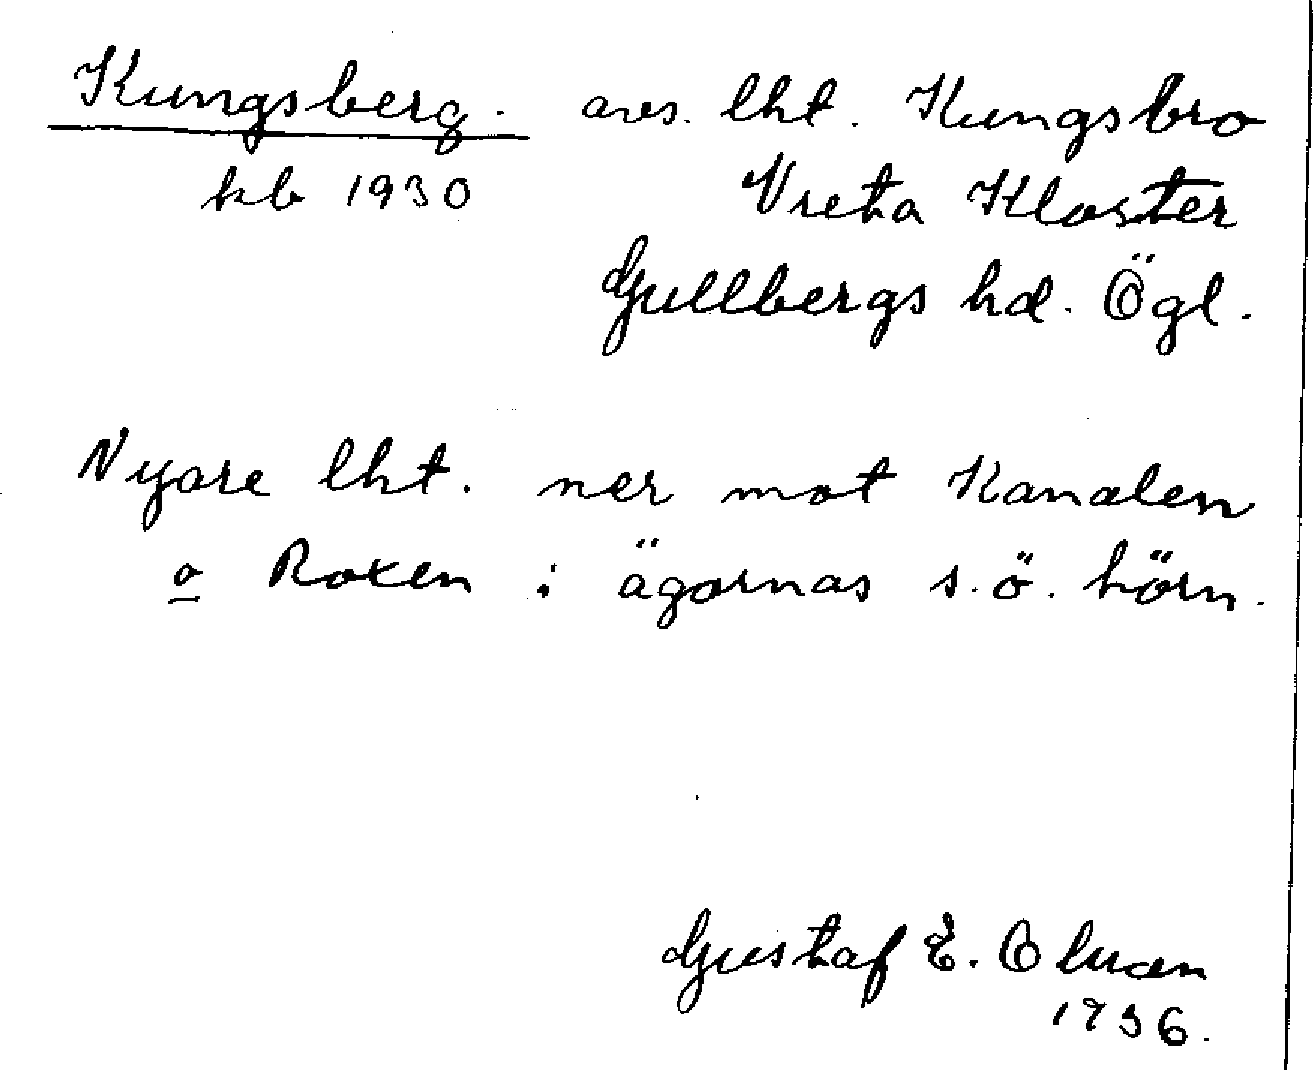 Kungsberg. avs. lht. Kungsbro
kb 1930 Vreta Kloster
Gullbergs hd. Ögl.
Nyare lht. ner mot Kanalen
o Roxen i ägornas s.ö. hörn.
Gustaf E.
1936.